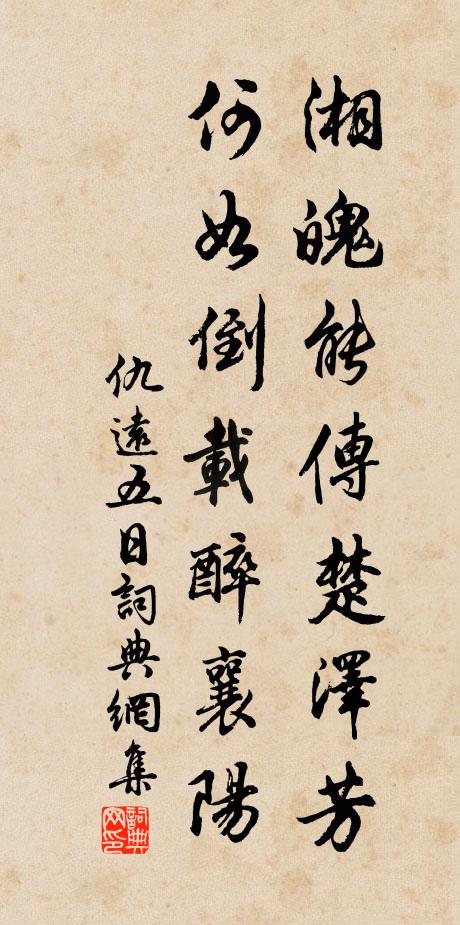 湘魄能傳楚澤芳
何如倒載醉襄陽
仇遠五日詞典網集
詞典網印